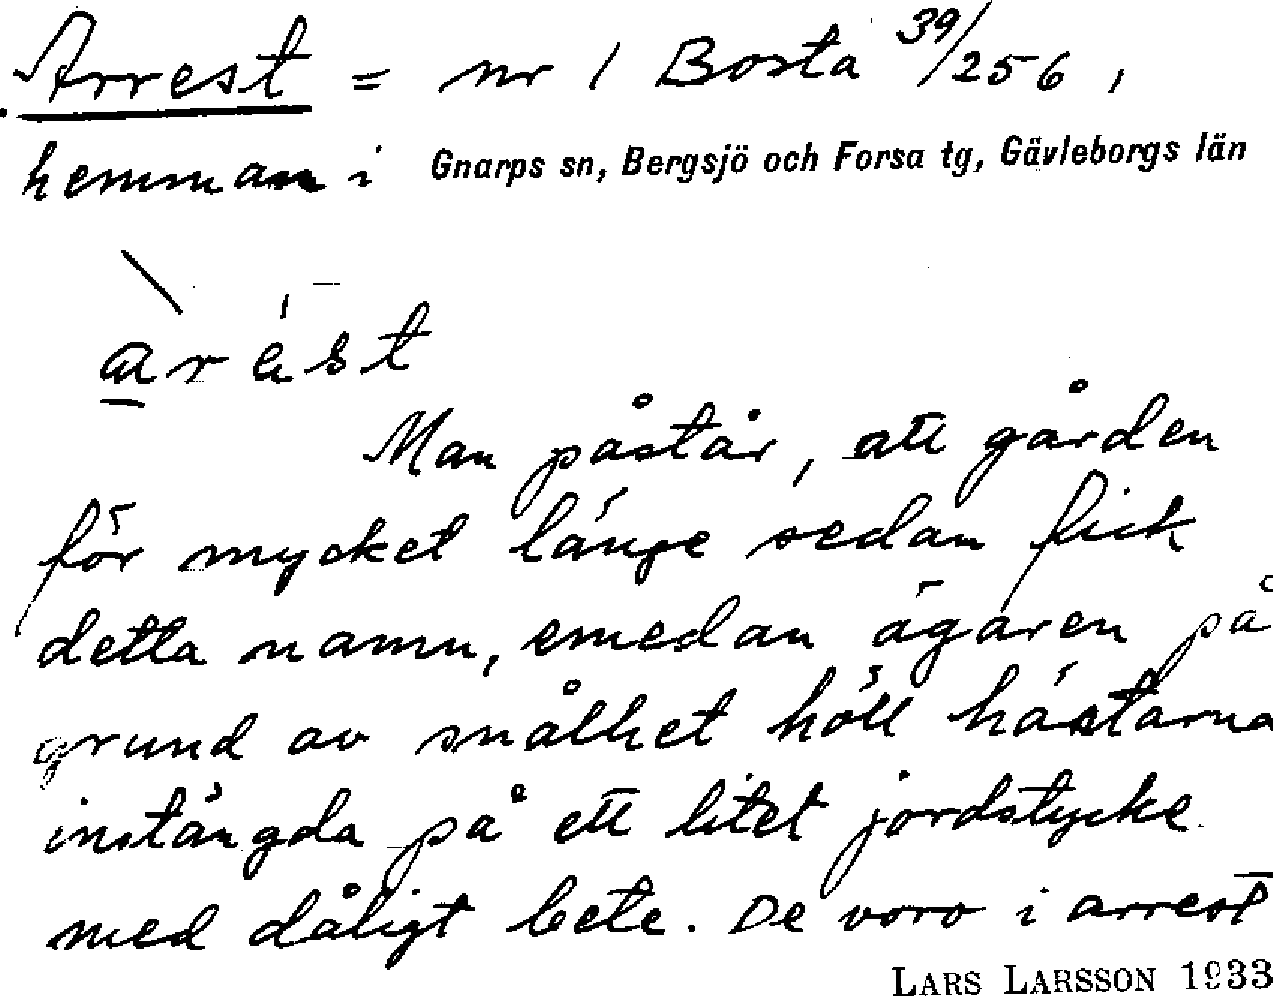 Arrest = nr 1 Bosta 39/256,
hemman i Gnarps sn, Bergsjö och Forsa tg, Gävleborgs län
arést
Man påstår, att gården
för mycket länge sedan fick
detta namn, emedan ägaren på
grund av snålhet höll hästarna
instängda på ett litet jordstycke
med dåligt bete. De voro i arrest
LARS LARSSON 1933